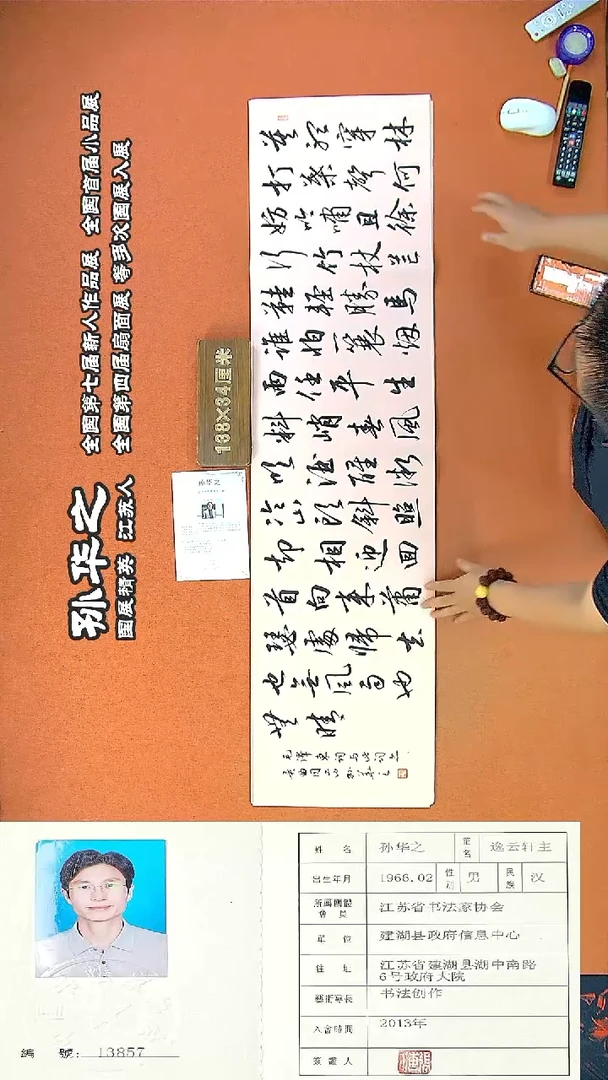 孙华之
国展精英 江苏人
全国第七届新人作品展 全国首届小品展
全国第四届扇面展 等多次国展入展
138×34厘米
孙华之
莫听穿林
打葉聲何
妨吟嘯且徐
行竹杖芒
鞋輕勝馬
誰怕一蓑烟
雨任平生
料峭春風
吹酒醒微
冷山頭斜照
却相迎回
首向來蕭
瑟處歸去
也無風雨也
無晴
姓 名 孙华之 堂名 逸云轩主
出生年月 1966.02 性别 男 民族 汉
所屬團體會員 江苏省书法家协会
單 位 建湖县政府信息中心
住 址 江苏省建湖县湖中南路6号政府大院
藝術專長 书法创作
入會時間 2013年
簽證人
編 號：13857